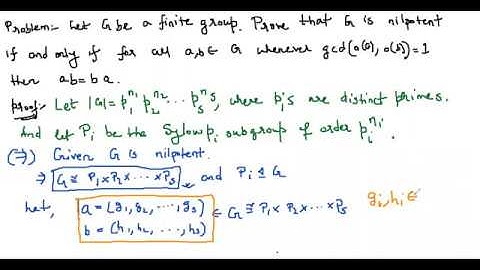 Problem:- Let G be a finite group. Prove that G is nilpotent
if and only if for all a,b ∈ G whenever gcd(o(a), o(b))=1
then ab = ba.
Proof:- Let |G| = p₁^{n₁} p₂^{n₂} ... p_s^{n_s}, where pᵢ's are distinct primes.
And let Pᵢ be the Sylow pᵢ subgroup of order pᵢ^{nᵢ}.
(⇒) Given G is nilpotent.
⇒ G ≅ P₁ × P₂ × ... × P_s and Pᵢ ⊴ G
Let, a = (g₁, g₂, ..., g_s)
b = (h₁, h₂, ..., h_s) ∈ G ≅ P₁ × P₂ × ... × P_s gᵢ, hᵢ ∈